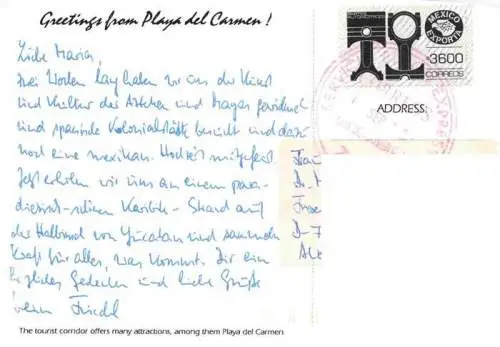 Greetings from Playa del Carmen !
Liebe Maria,
drei Wochen lang haben wir uns der Kunst
und Kultur der Azteken und Mayas gewidmet
und spanische Kolonialstädte besucht und dazu
noch eine mexikan. Hochzeit mitgefeiert.
Jetzt erholen wir uns an einem para-
diesisch-schönen Karibik-Strand auf
der Halbinsel von Yucatan und sammeln
Kraft für alles, was kommt. Dir ein
herzliches Gedenken und liebe Grüße
Friedl
The tourist corridor offers many attractions, among them Playa del Carmen
MEXICO
EXPORTA
3600
CORREOS
ADDRESS:
Frau
D-7